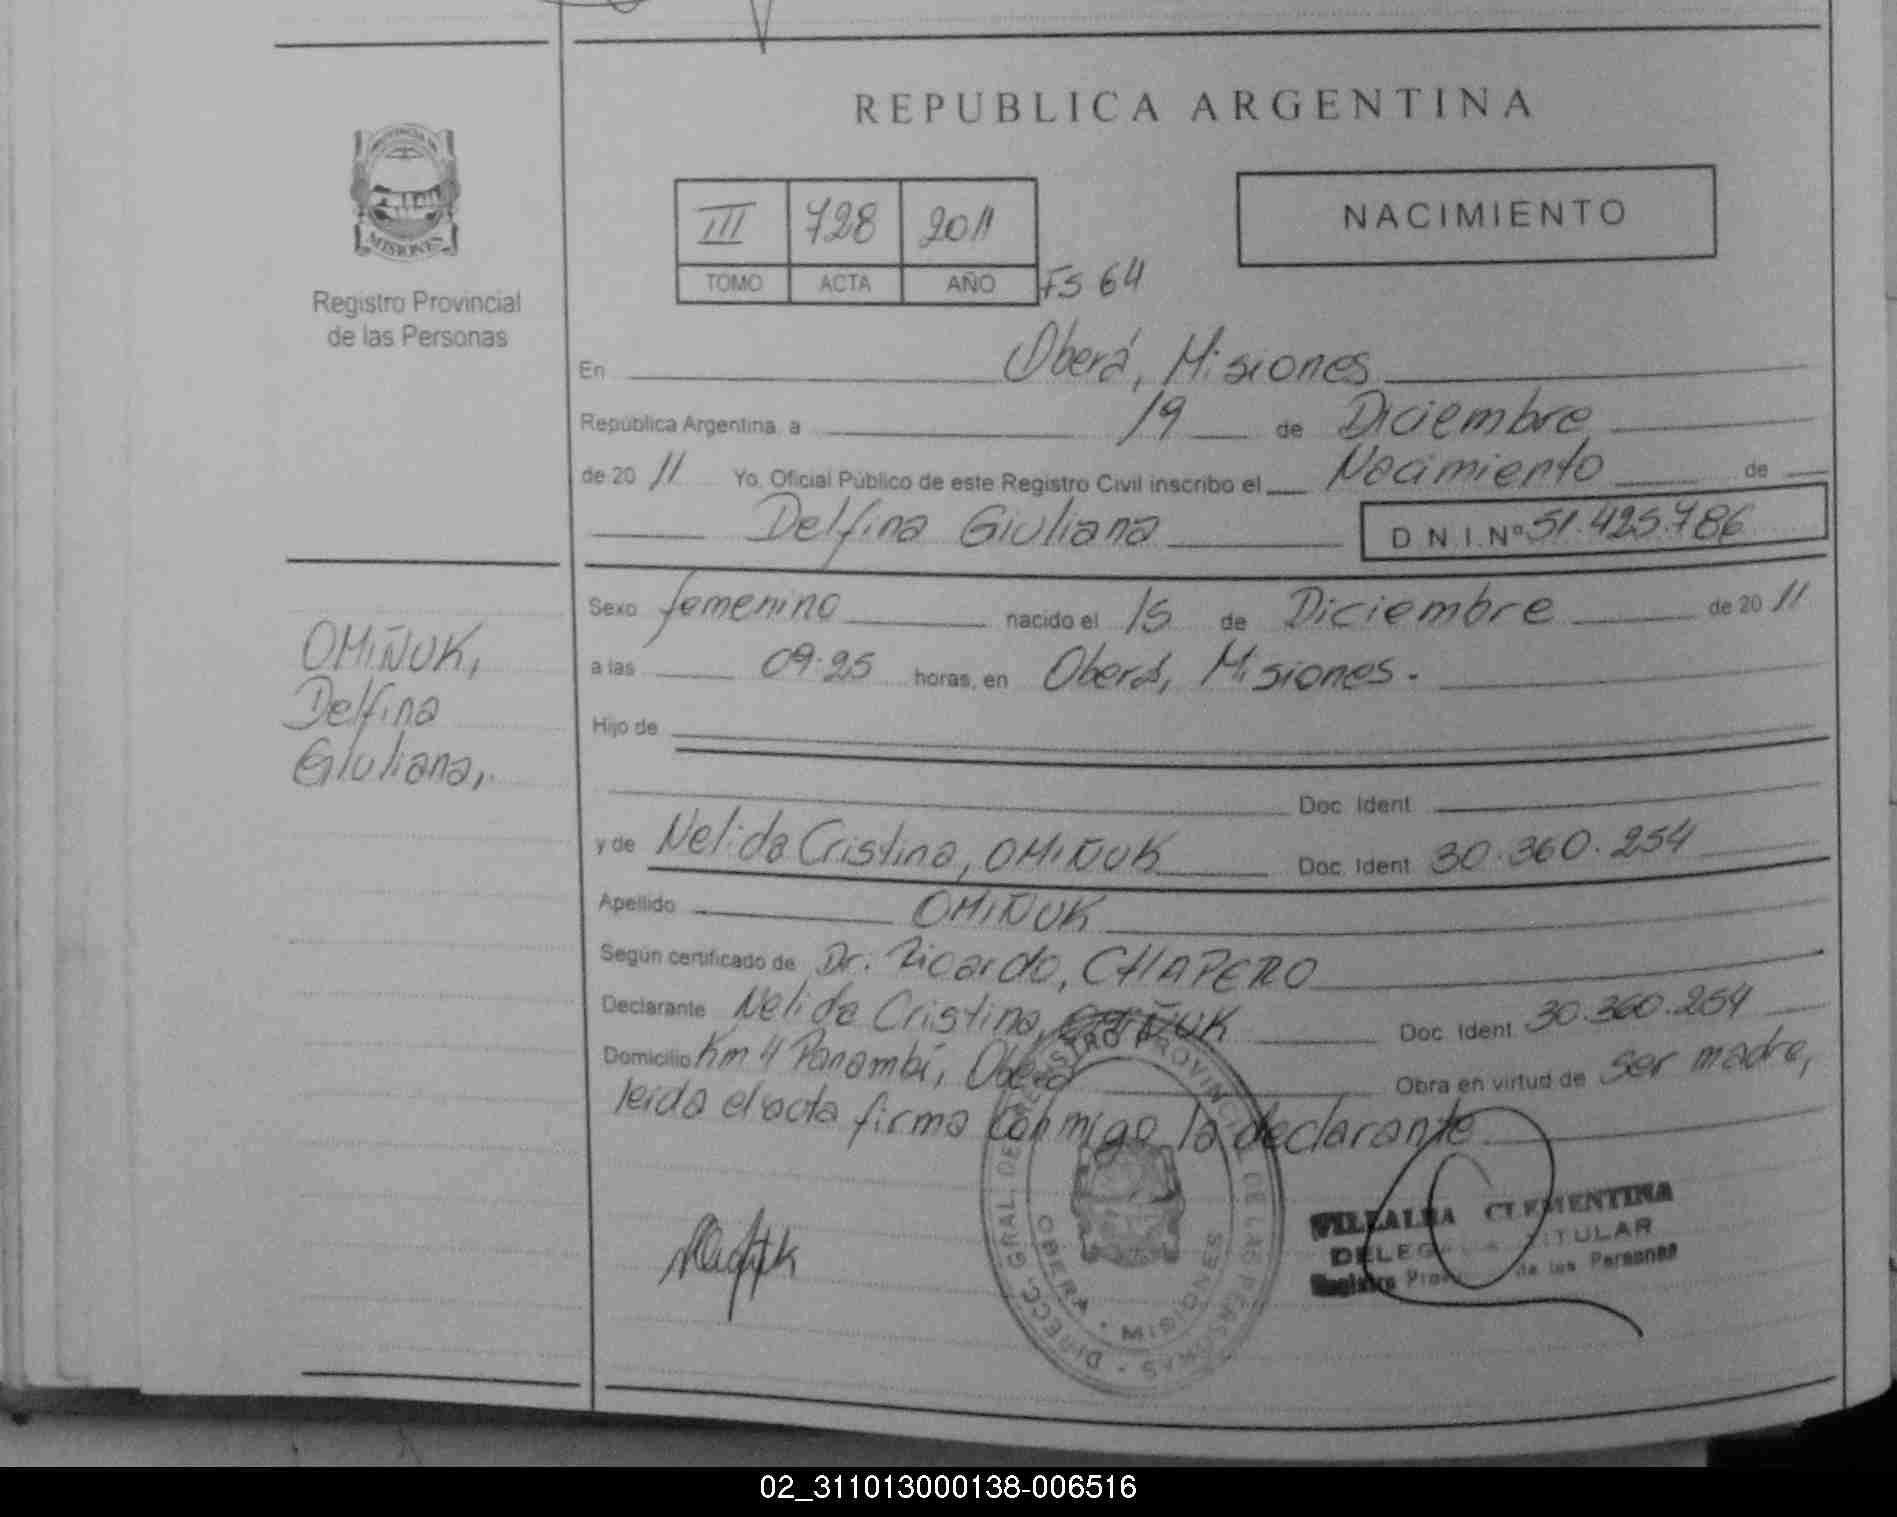 REPUBLICA ARGENTINA
PROVINCIA DE
MISIONES
Registro Provincial
de las Personas
III 728 2011
TOMO ACTA AÑO
Fs 64
NACIMIENTO
En Oberá, Misiones
República Argentina, a 19 de Diciembre
de 20 11 Yo, Oficial Público de este Registro Civil inscribo el Nacimiento de
Delfina Giuliana D.N.I. Nº 51.425.786
OMIÑUK,
Delfina
Giuliana,
Sexo femenino nacido el 15 de Diciembre de 20 11
a las 09:25 horas, en Oberá, Misiones.
Hijo de
Doc. Ident.
y de Nelida Cristina, OMIÑUK Doc. Ident. 30.360.254
Apellido OMIÑUK
Según certificado de Dr. Ricardo, CHAPERO
Declarante Nelida Cristina, OMIÑUK Doc. Ident. 30.360.254
Domicilio Km 4 Panambí, Oberá Obra en virtud de ser madre,
leida el acta firma conmigo la declarante
DIRECC. GRAL. DE REGISTRO PROVINCIAL DE LAS PERSONAS
OBERA - MISIONES
VILLALBA CLEMENTINA
DELEGADA TITULAR
Registro Prov. de las Personas
02_311013000138-006516